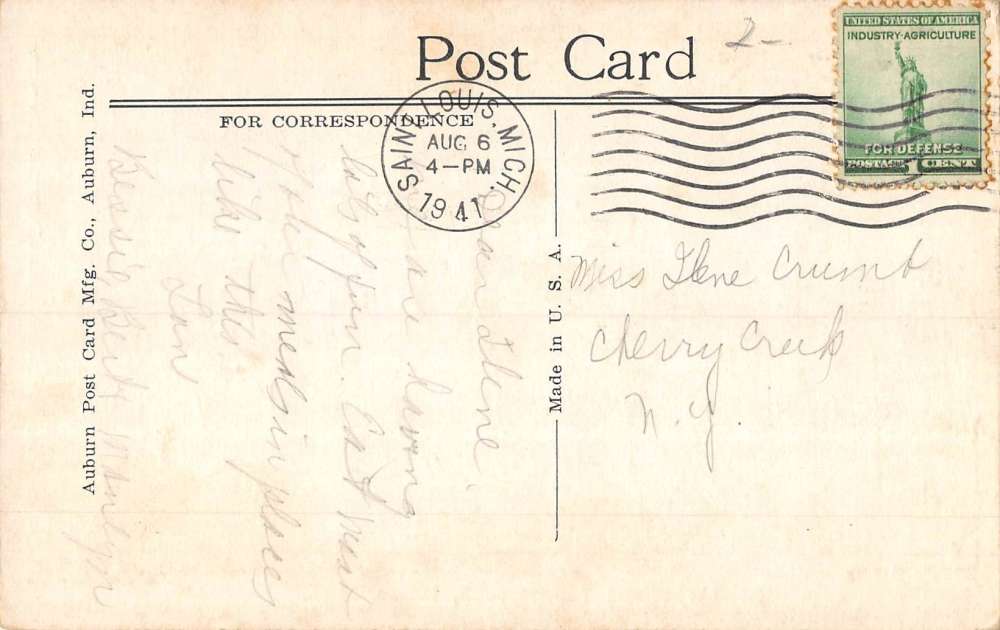 Post Card
2-
UNITED STATES OF AMERICA
INDUSTRY-AGRICULTURE
FOR DEFENSE
POSTAGE 1 CENT
FOR CORRESPONDENCE
SAINT LOUIS, MICH.
AUG 6
4-PM
1941
Dear Ilene,
are having
lots of fun. Eat most
of our meals in places
like this.
Auburn Post Card Mfg. Co., Auburn, Ind.
Made in U. S. A.
Miss Ilene Crumb
Cherry Creek
N.Y.